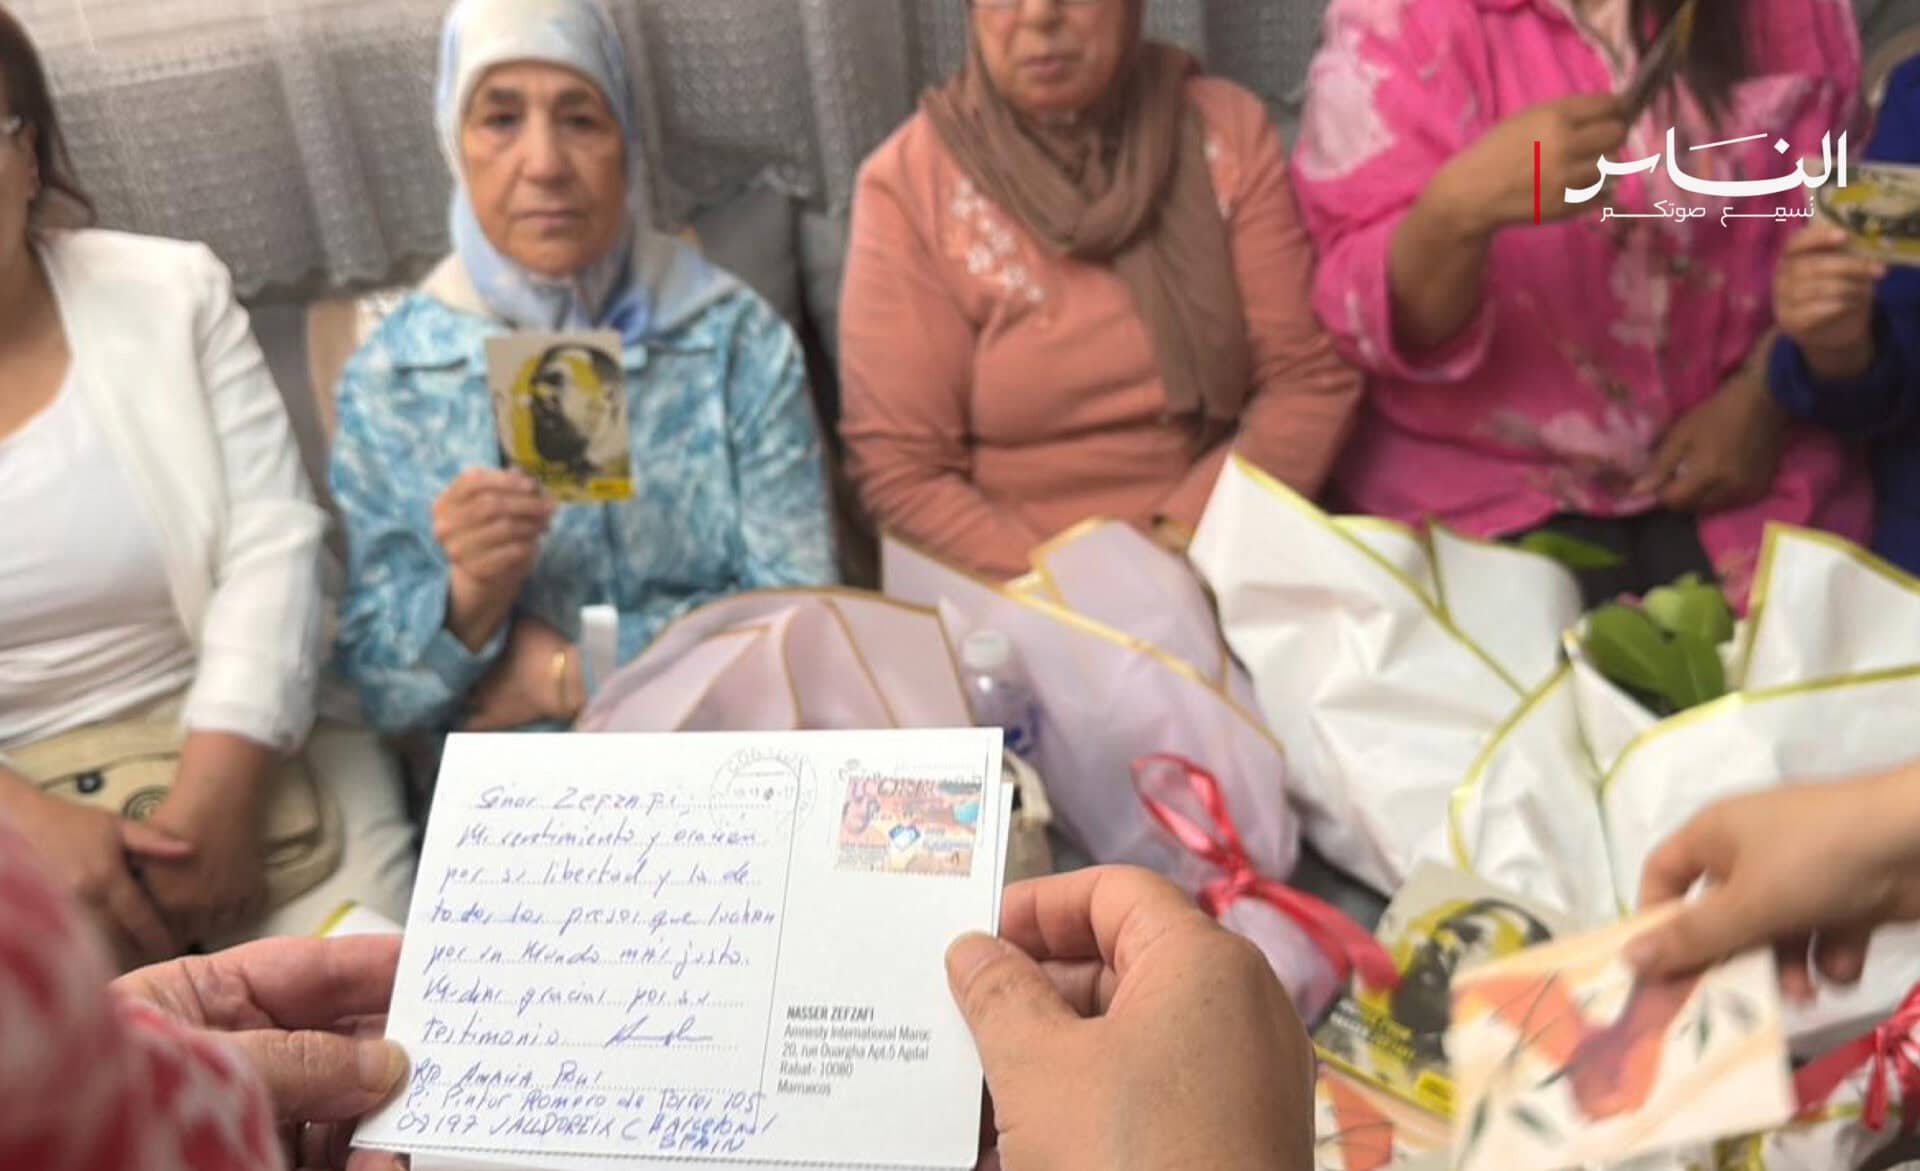 الناس
نسمع صوتكم
Señor Zefzafi,
Mi sentimiento y oración
por su libertad y la de
todos los presos que luchan
por un mundo más justo.
gracias por su
testimonio
NASSER ZEFZAFI
Amnesty International Maroc
20, rue Ouargha Apt.5 Agdal
Rabat - 10080
Marruecos
Pintor Romero de Torres 105
08197 VALLDOREIX (Barcelona)
SPAIN